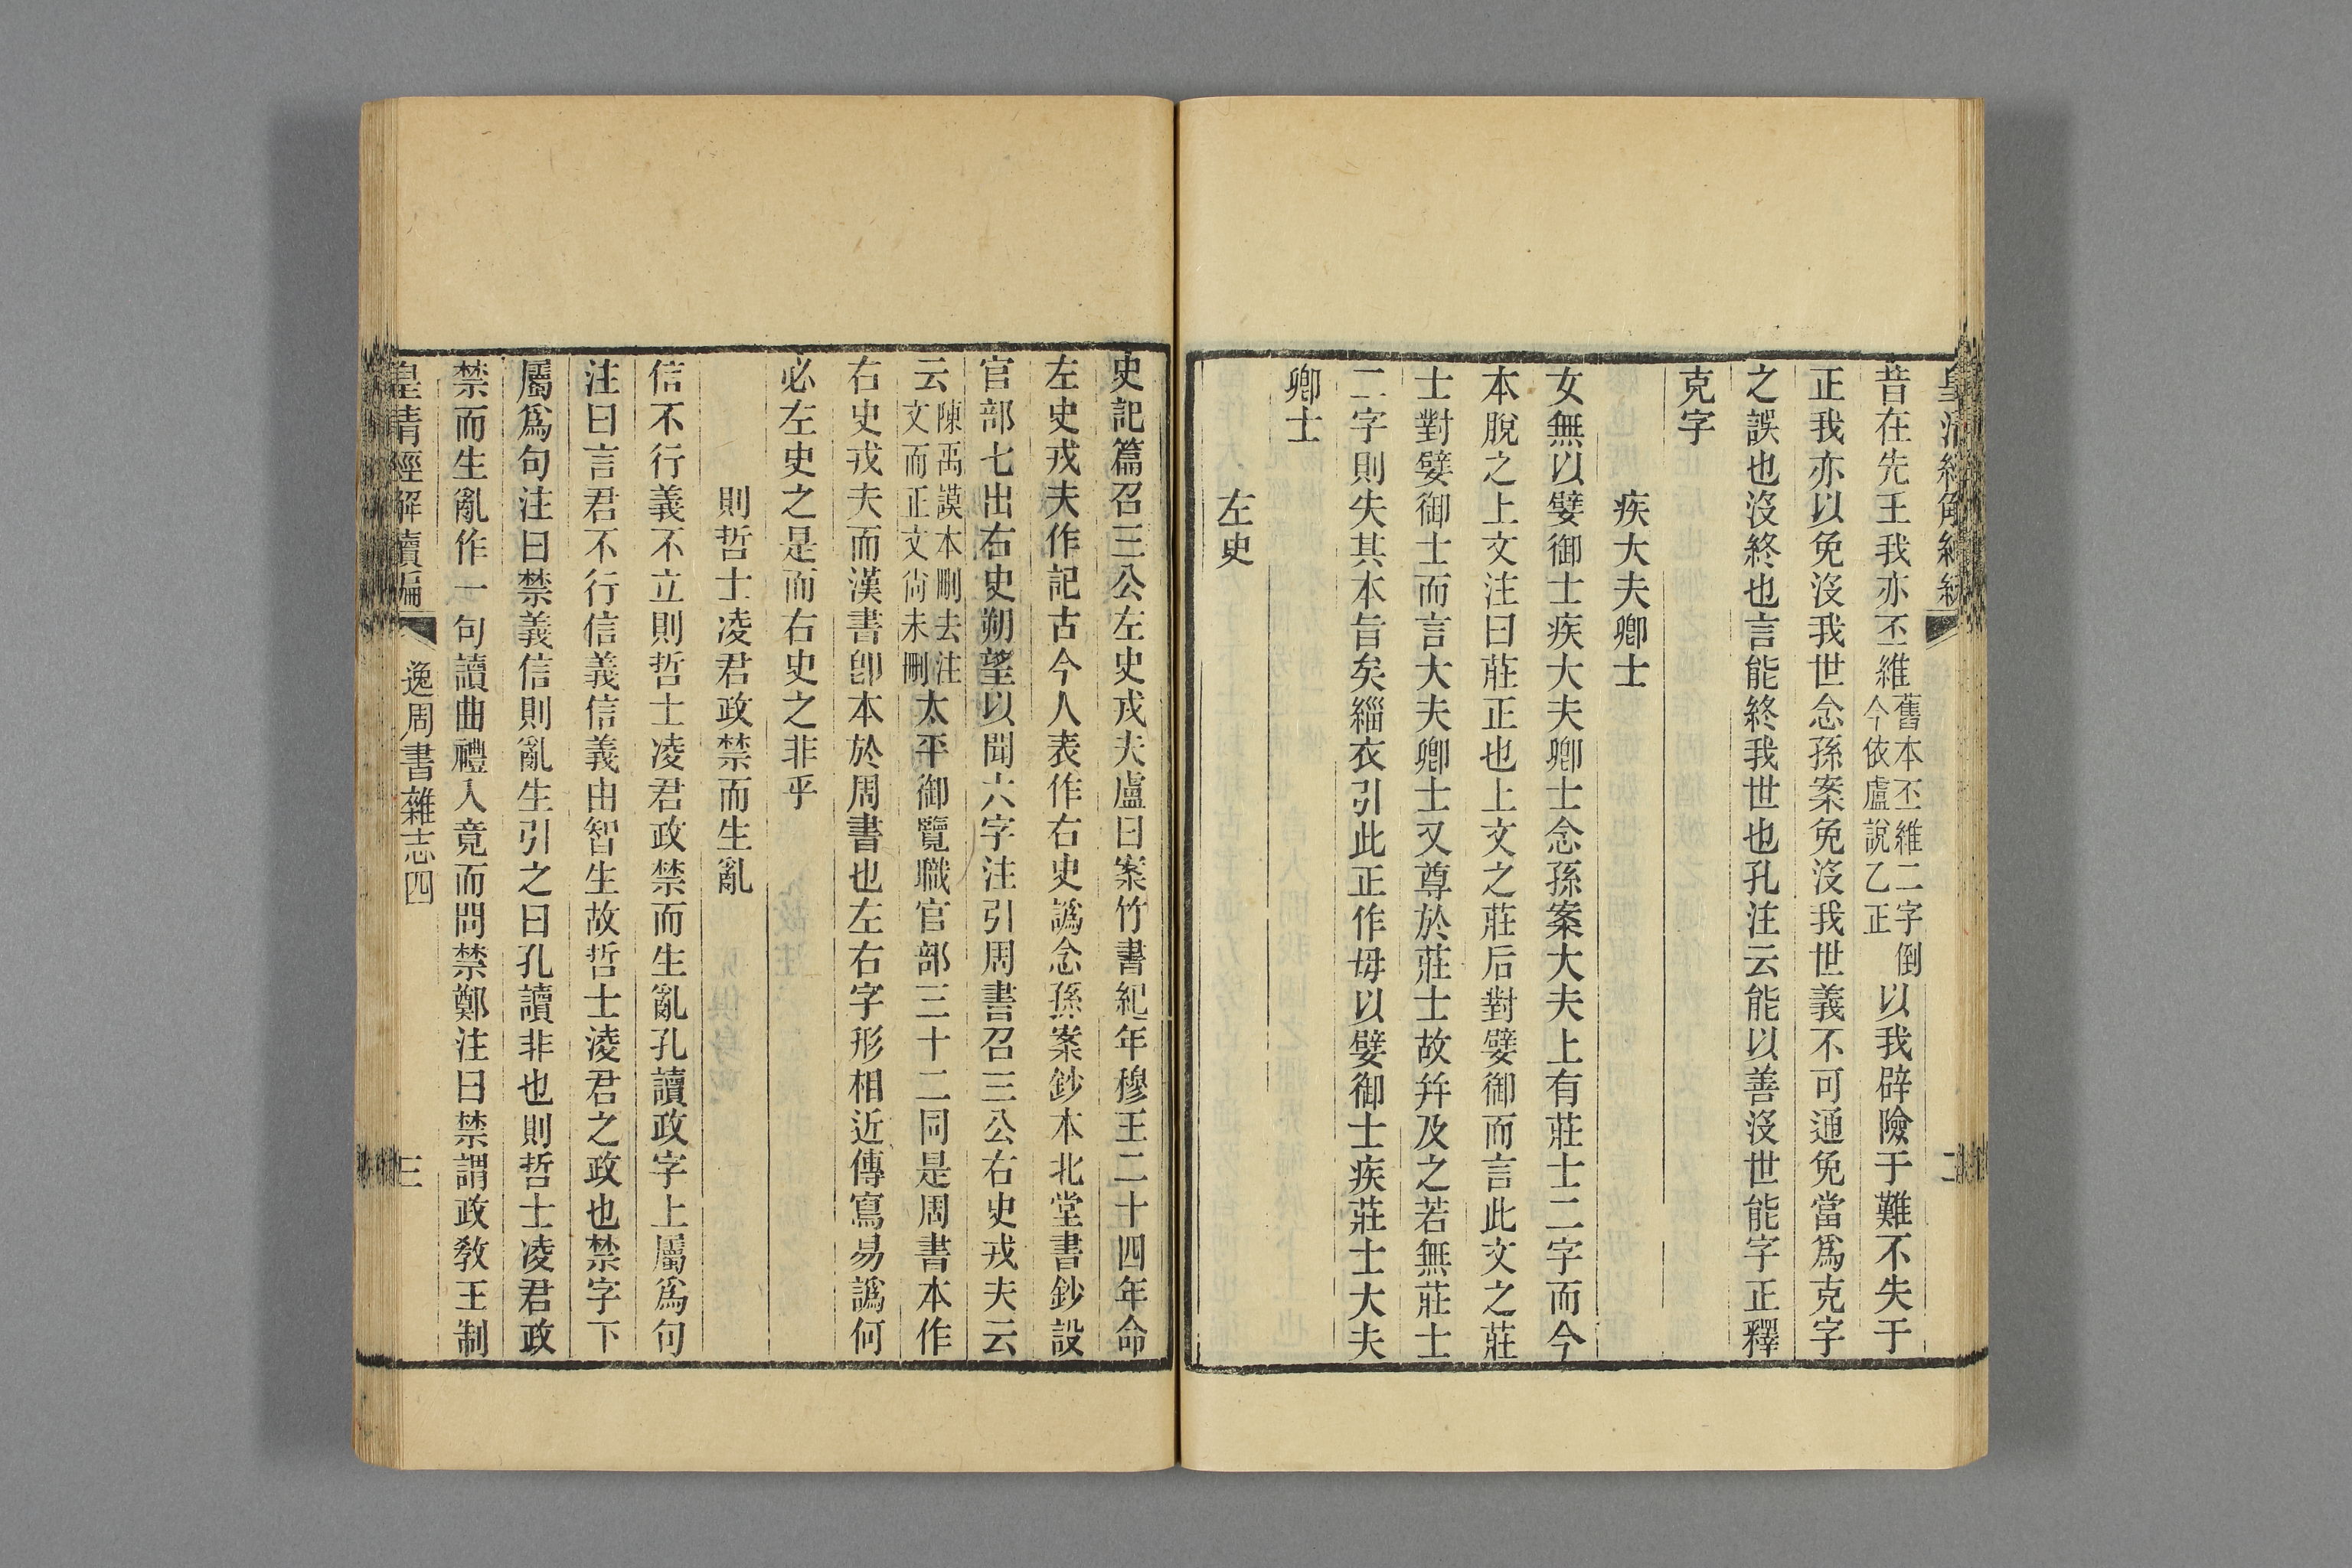 皇清經解續編
二
昔在先王我亦丕維舊本丕維二字倒今依盧說乙正以我辟險于難不失于
正我亦以免沒我世念孫案免沒我世義不可通免當爲克字
之誤也沒終也言能終我世也孔注云能以善沒世能字正釋
克字
疾大夫卿士
女無以嬖御士疾大夫卿士念孫案大夫上有莊士二字而今
本脫之上文注曰莊正也上文之莊后對嬖御而言此文之莊
士對嬖御士而言大夫卿士又尊於莊士故幷及之若無莊士
二字則失其本旨矣緇衣引此正作毋以嬖御士疾莊士大夫
卿士
左史
史記篇召三公左史戎夫盧曰案竹書紀年穆王二十四年命
左史戎夫作記古今人表作右史譌念孫案鈔本北堂書鈔設
官部七出右史朔望以聞六字注引周書召三公右史戎夫云
云陳禹謨本刪去注文而正文尙未刪太平御覽職官部三十二同是周書本作
右史戎夫而漢書卽本於周書也左右字形相近傳寫易譌何
必左史之是而右史之非乎
則哲士凌君政禁而生亂
信不行義不立則哲士凌君政禁而生亂孔讀政字上屬爲句
注曰言君不行信義信義由智生故哲士淩君之政也禁字下
屬爲句注曰禁義信則亂生引之曰孔讀非也則哲士凌君政
禁而生亂作一句讀曲禮入竟而問禁鄭注曰禁謂政敎王制
皇清經解續編
逸周書雜志四
三